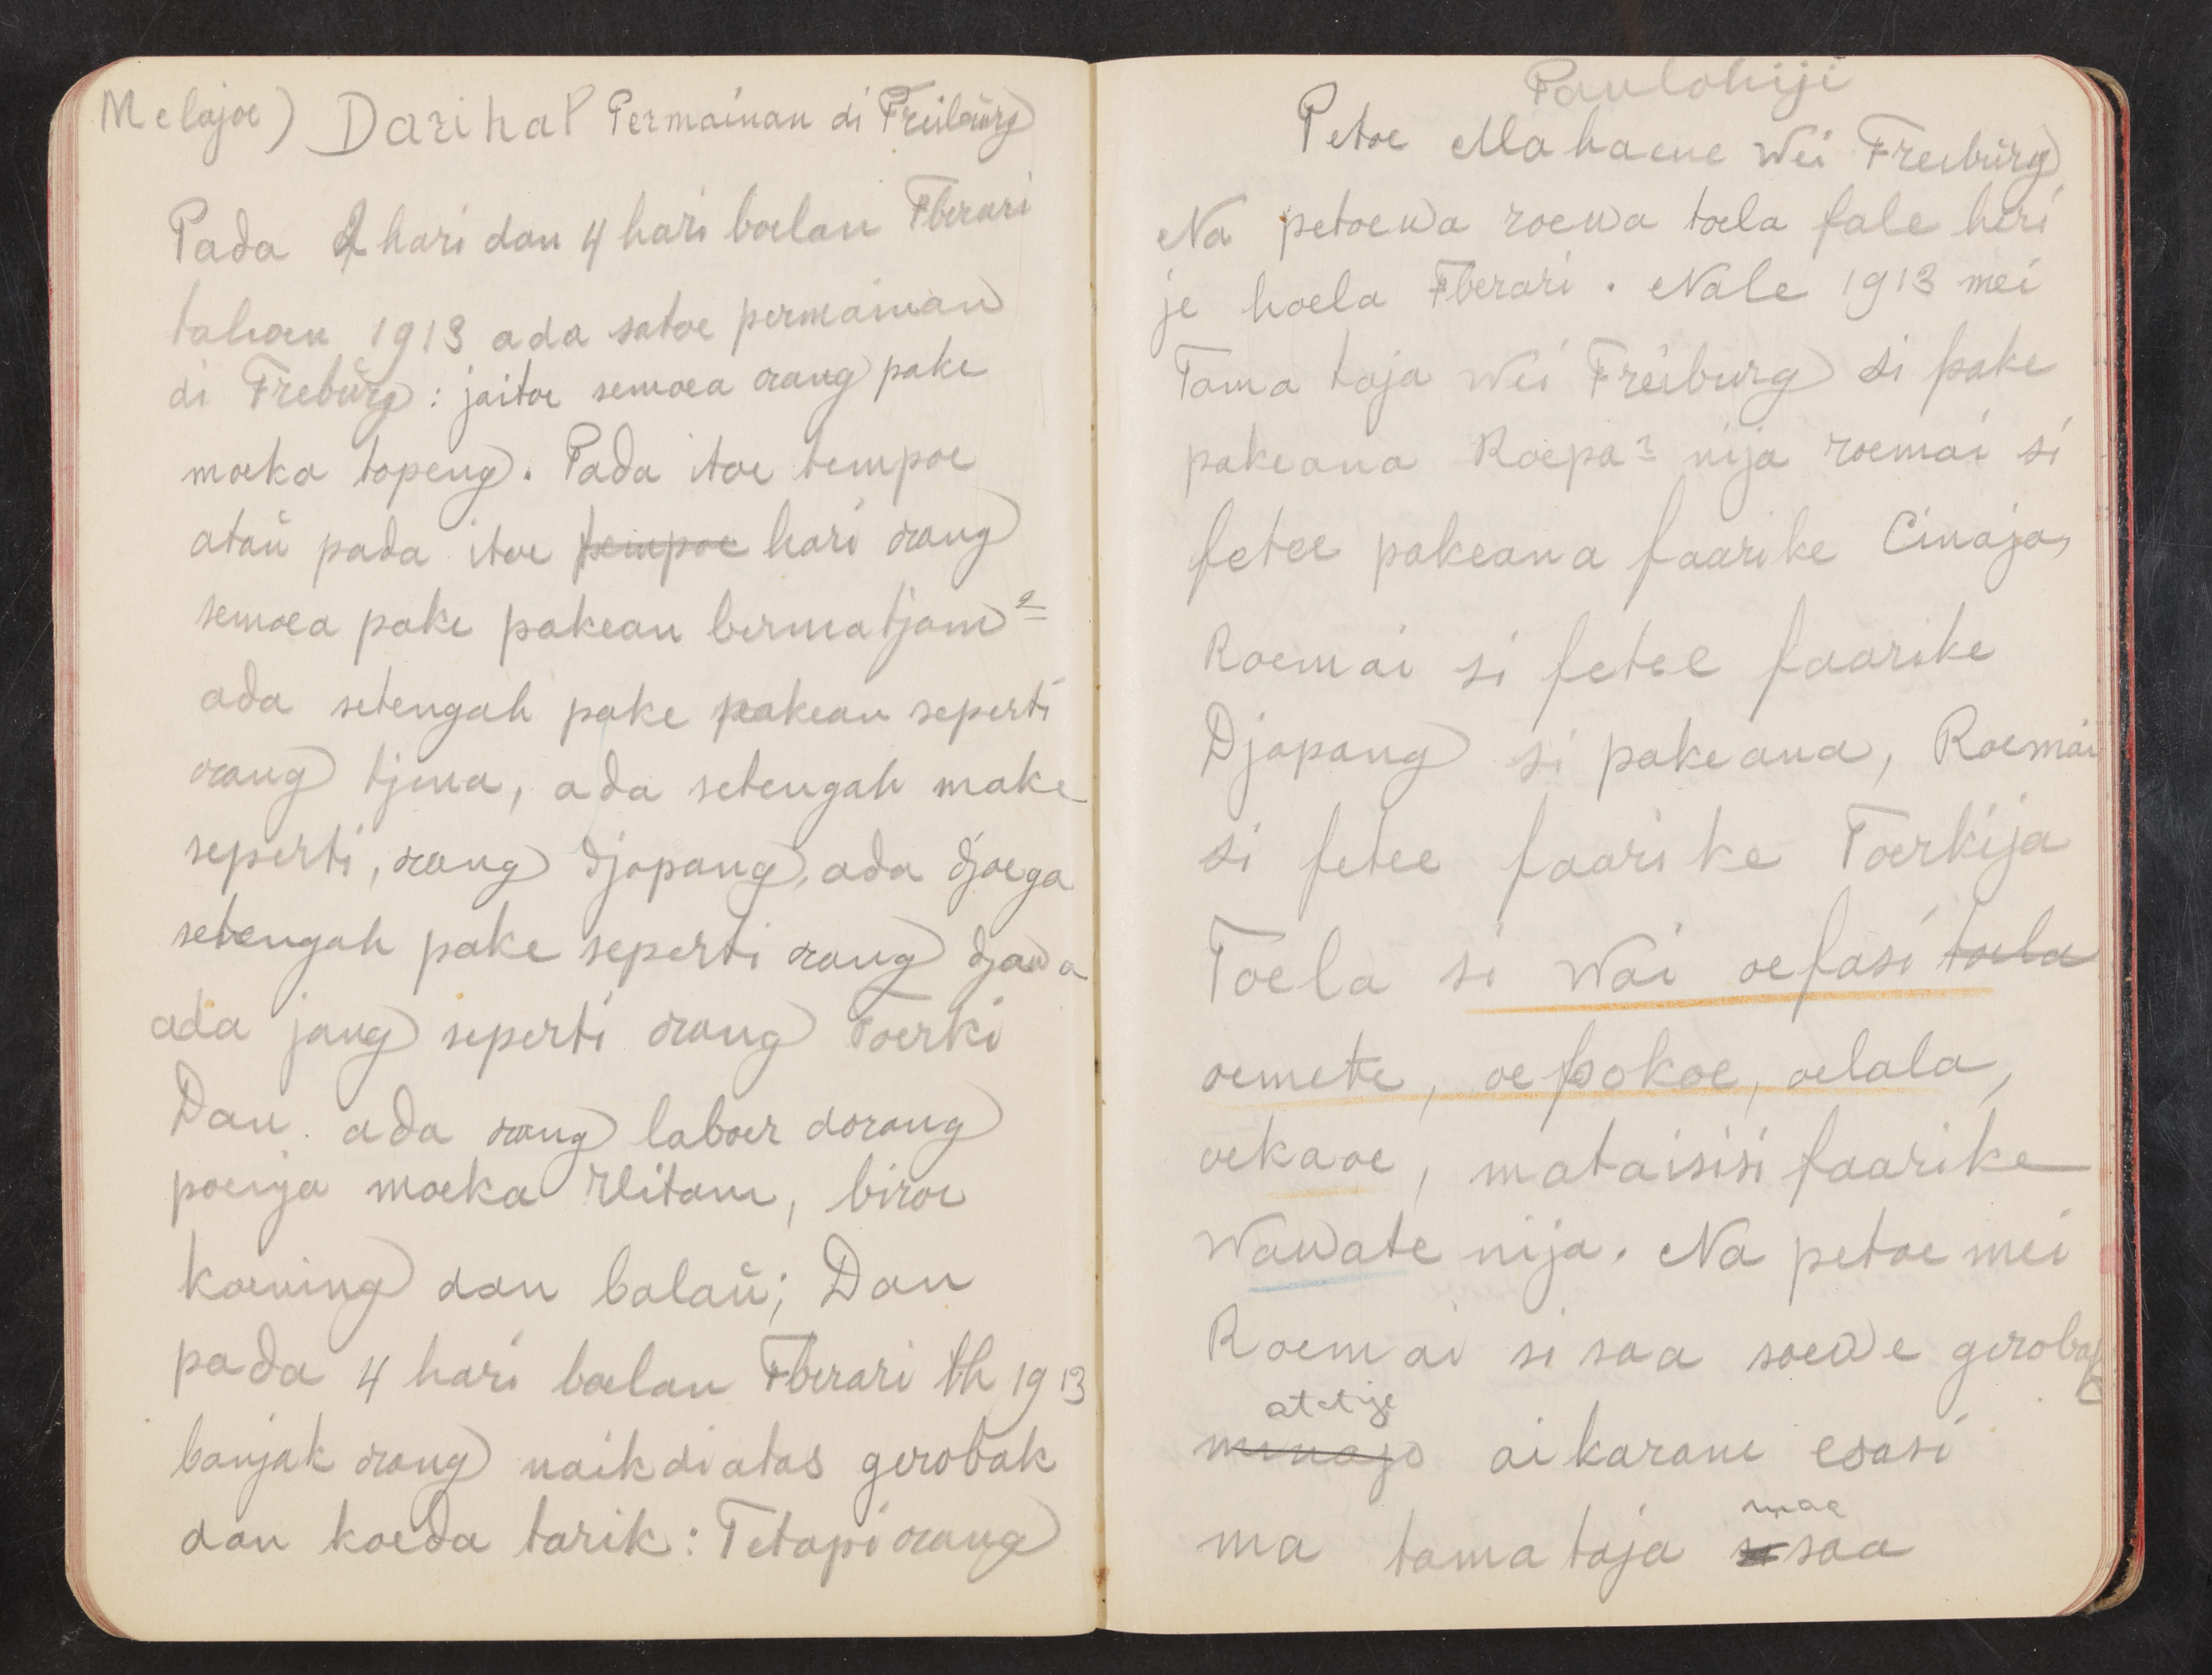 Melajoe) Darihal Permainan di Freiburg
Pada 2 hari dan 4 hari boelan Fberari
tahoen 1913 ada satoe permainan
di Freburg : jaitoe semoea orang pake
moeka topeng. Pada itoe tempoe
ataŭ pada itoe tempoe hari orang
semoea pake pakean bermatjam²
ada setengah pake pakean seperti
orang tjena, ada setengah make
seperti, orang Djapang, ada djoega
setengah pake seperti orang djawa
ada jang seperti orang Toerki
Dan ada orang laboer dorang
poenja moeka Itam, biroe
koening dan balaŭ; Dan
pada 4 hari boelan Fberari th 1913
banjak orang naik di atas gerobak
dan koeda tarik : Tetapi orang
Paulohiji
Petoe Mahaene Wei Freiburg
Na petoewa roewa toela fale heri
je hoela Fberari . Nale 1913 mei
Tama taja Wei Freiburg si pake
pakeana Roepa² nija roemai si
fetee pakeana faarike Cinaja,
Roemai si fetee faarike
Djapang si pakeana, Roemai
si fetee faarike Toerkija
Toela si Wai oefasi toela
oemete, oepokoe, oelala,
oekaoe, mataisisi faarike
Wawate nija. Na petoe mei
Roemai si saa soewe gerobak
atetije
minajo aikarane esasi
mae
ma tama taja si saa